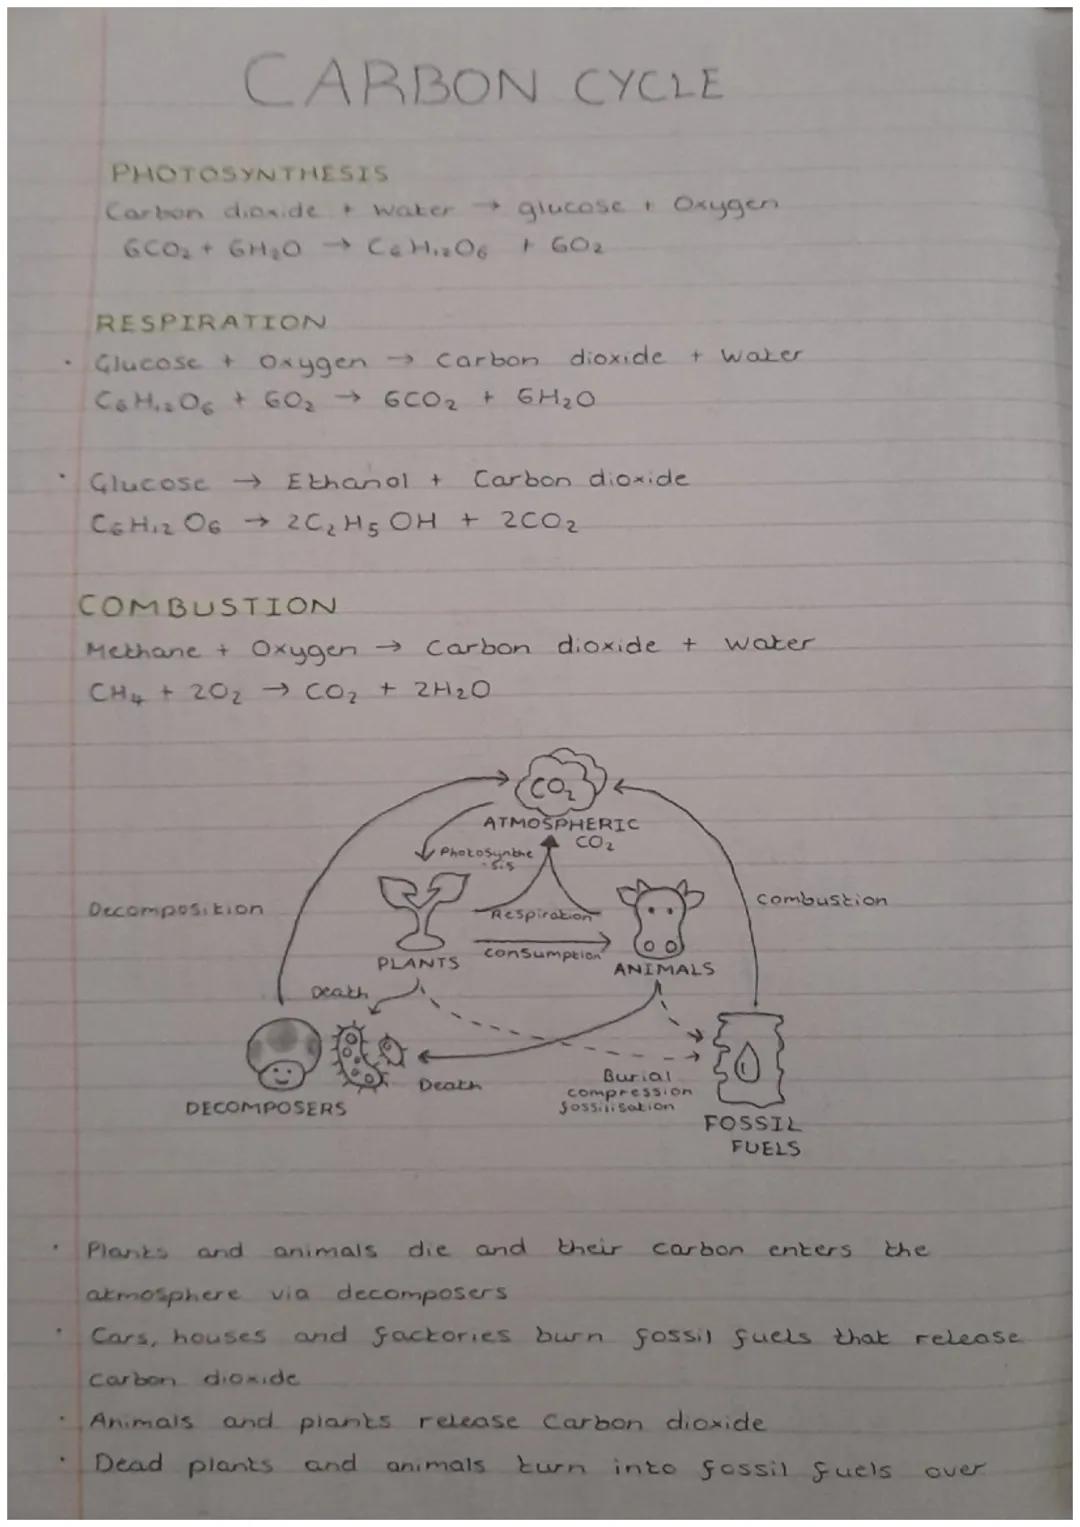 CARBON CYCLE
PHOTOSYNTHESIS
Carbon dioxide + water → glucose + Oxygen
6CO₂ + 6H₂O → C₆H₁₂O₆ + 6O₂
RESPIRATION
• Glucose + Oxygen → Carbon dioxide + water
C₆H₁₂O₆ + 6O₂ → 6CO₂ + 6H₂O
• Glucose → Ethanol + Carbon dioxide
C₆H₁₂O₆ → 2C₂H₅OH + 2CO₂
COMBUSTION
Methane + Oxygen → Carbon dioxide + water
CH₄ + 2O₂ → CO₂ + 2H₂O
CO₂
ATMOSPHERIC
CO₂
Photosynthe
sis
Decomposition
Respiration
Combustion
consumption
PLANTS
ANIMALS
Death
Death
Burial
compression
fossilisation
DECOMPOSERS
FOSSIL
FUELS
• Plants and animals die and their carbon enters the
atmosphere via decomposers
• Cars, houses and factories burn fossil fuels that release
carbon dioxide
• Animals and plants release Carbon dioxide
• Dead plants and animals turn into fossil fuels over